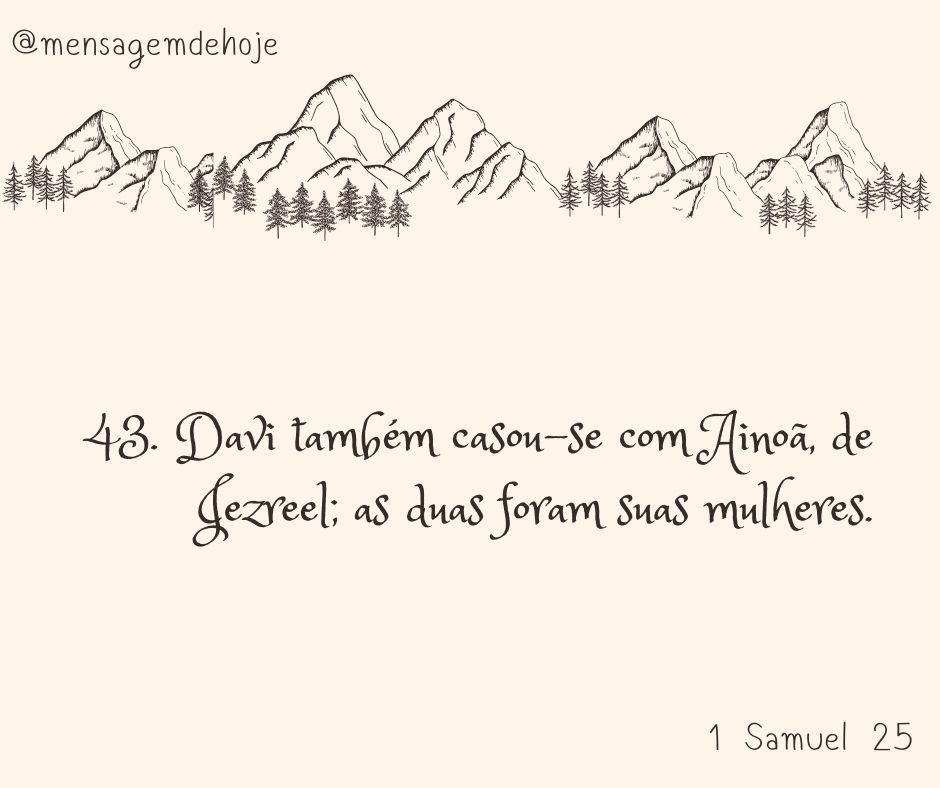 @mensagemdehoje
43. Davi também casou-se com Ainoã, de
Jezreel; as duas foram suas mulheres.
1 Samuel 25